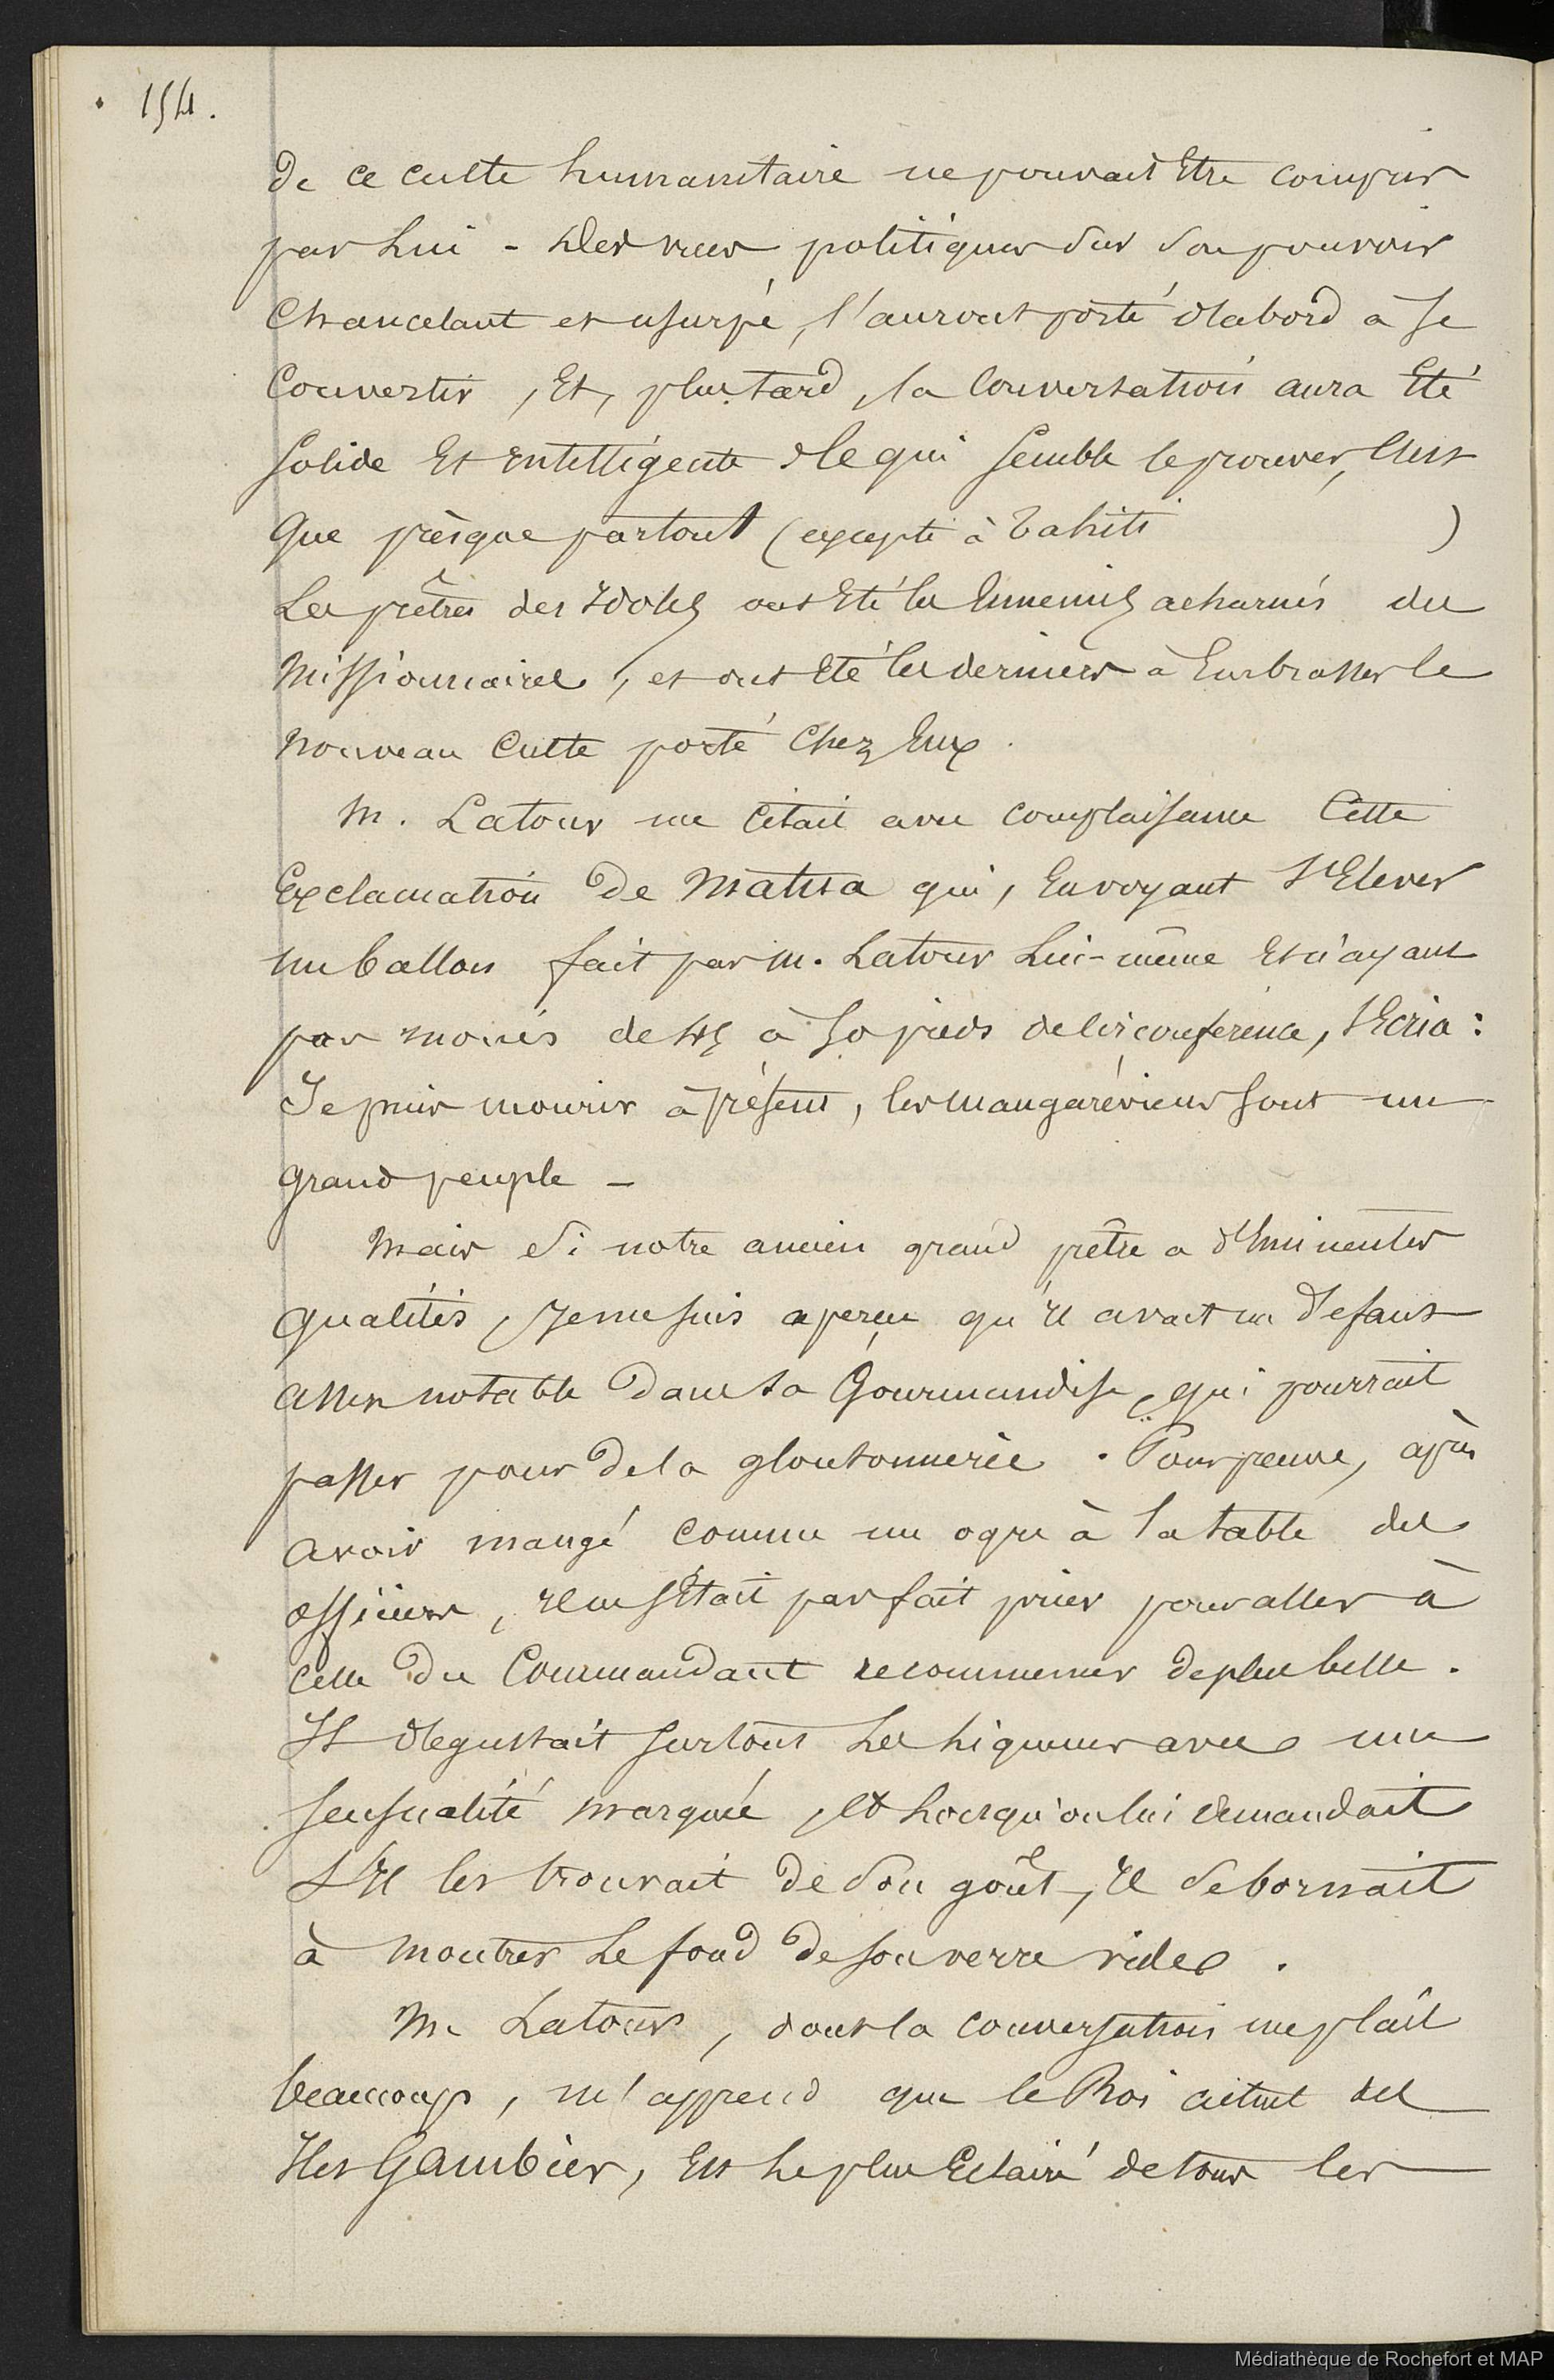 154.
de ce culte humanitaire ne pouvait Etre compris
par Lui - Des vues politiques sur son pouvoir
Chancelant et usurpé, l'auront porté d'abord à se
Convertir, Et, plus tard, la Conversation aura Eté
solide Et intelligente. Ce qui semble le prouver, C'est
que prèsque partout (excepté à Tahiti )
Les prêtres des Idoles ont Eté les Ennemis acharnés des
Missionnaires, et ont Eté les derniers à Embrasser le
nouveau Culte porté Chez Eux.
M. Latour me Citait avec complaisance Cette
Exclamation de Matua qui, En voyant S'Elever
un ballon fait par M. Latour Lui-même Et n'ayant
pas moins de 45 à 50 pieds de circonférence, S'Ecria :
Je puis mourir à présent, les mangaréviens sont un
grand peuple -
Mais si notre ancien grand prêtre a d'Eminentes
qualités, Je me suis aperçu qu'Il avait un défaut
assez notable dans sa Gourmandise, qui pourrait
passer pour de la gloutonnerie. Pour preuve, après
avoir mangé comme un ogre à la table des
officiers, Il ne s'Etait pas fait prier pour aller à
celle du Commandant recommencer de plus belle.
Il dégustait surtout Les Liqueurs avec une
sensualité marquée, et Lorsqu'on lui demandait
S'Il les trouvait de son goût, Il se bornait
à montrer Le fond de son verre vide.
M. Latour, dont la conversation me plaît
beaucoup, m'apprend que le Roi actuel des
Iles Gambier, Est Le plus Eclairé de tous les
Médiathèque de Rochefort et MAP